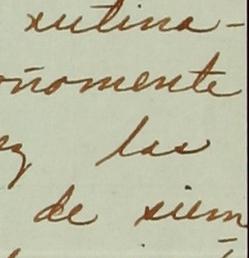 rutina-
oñomente
ez las
de siem